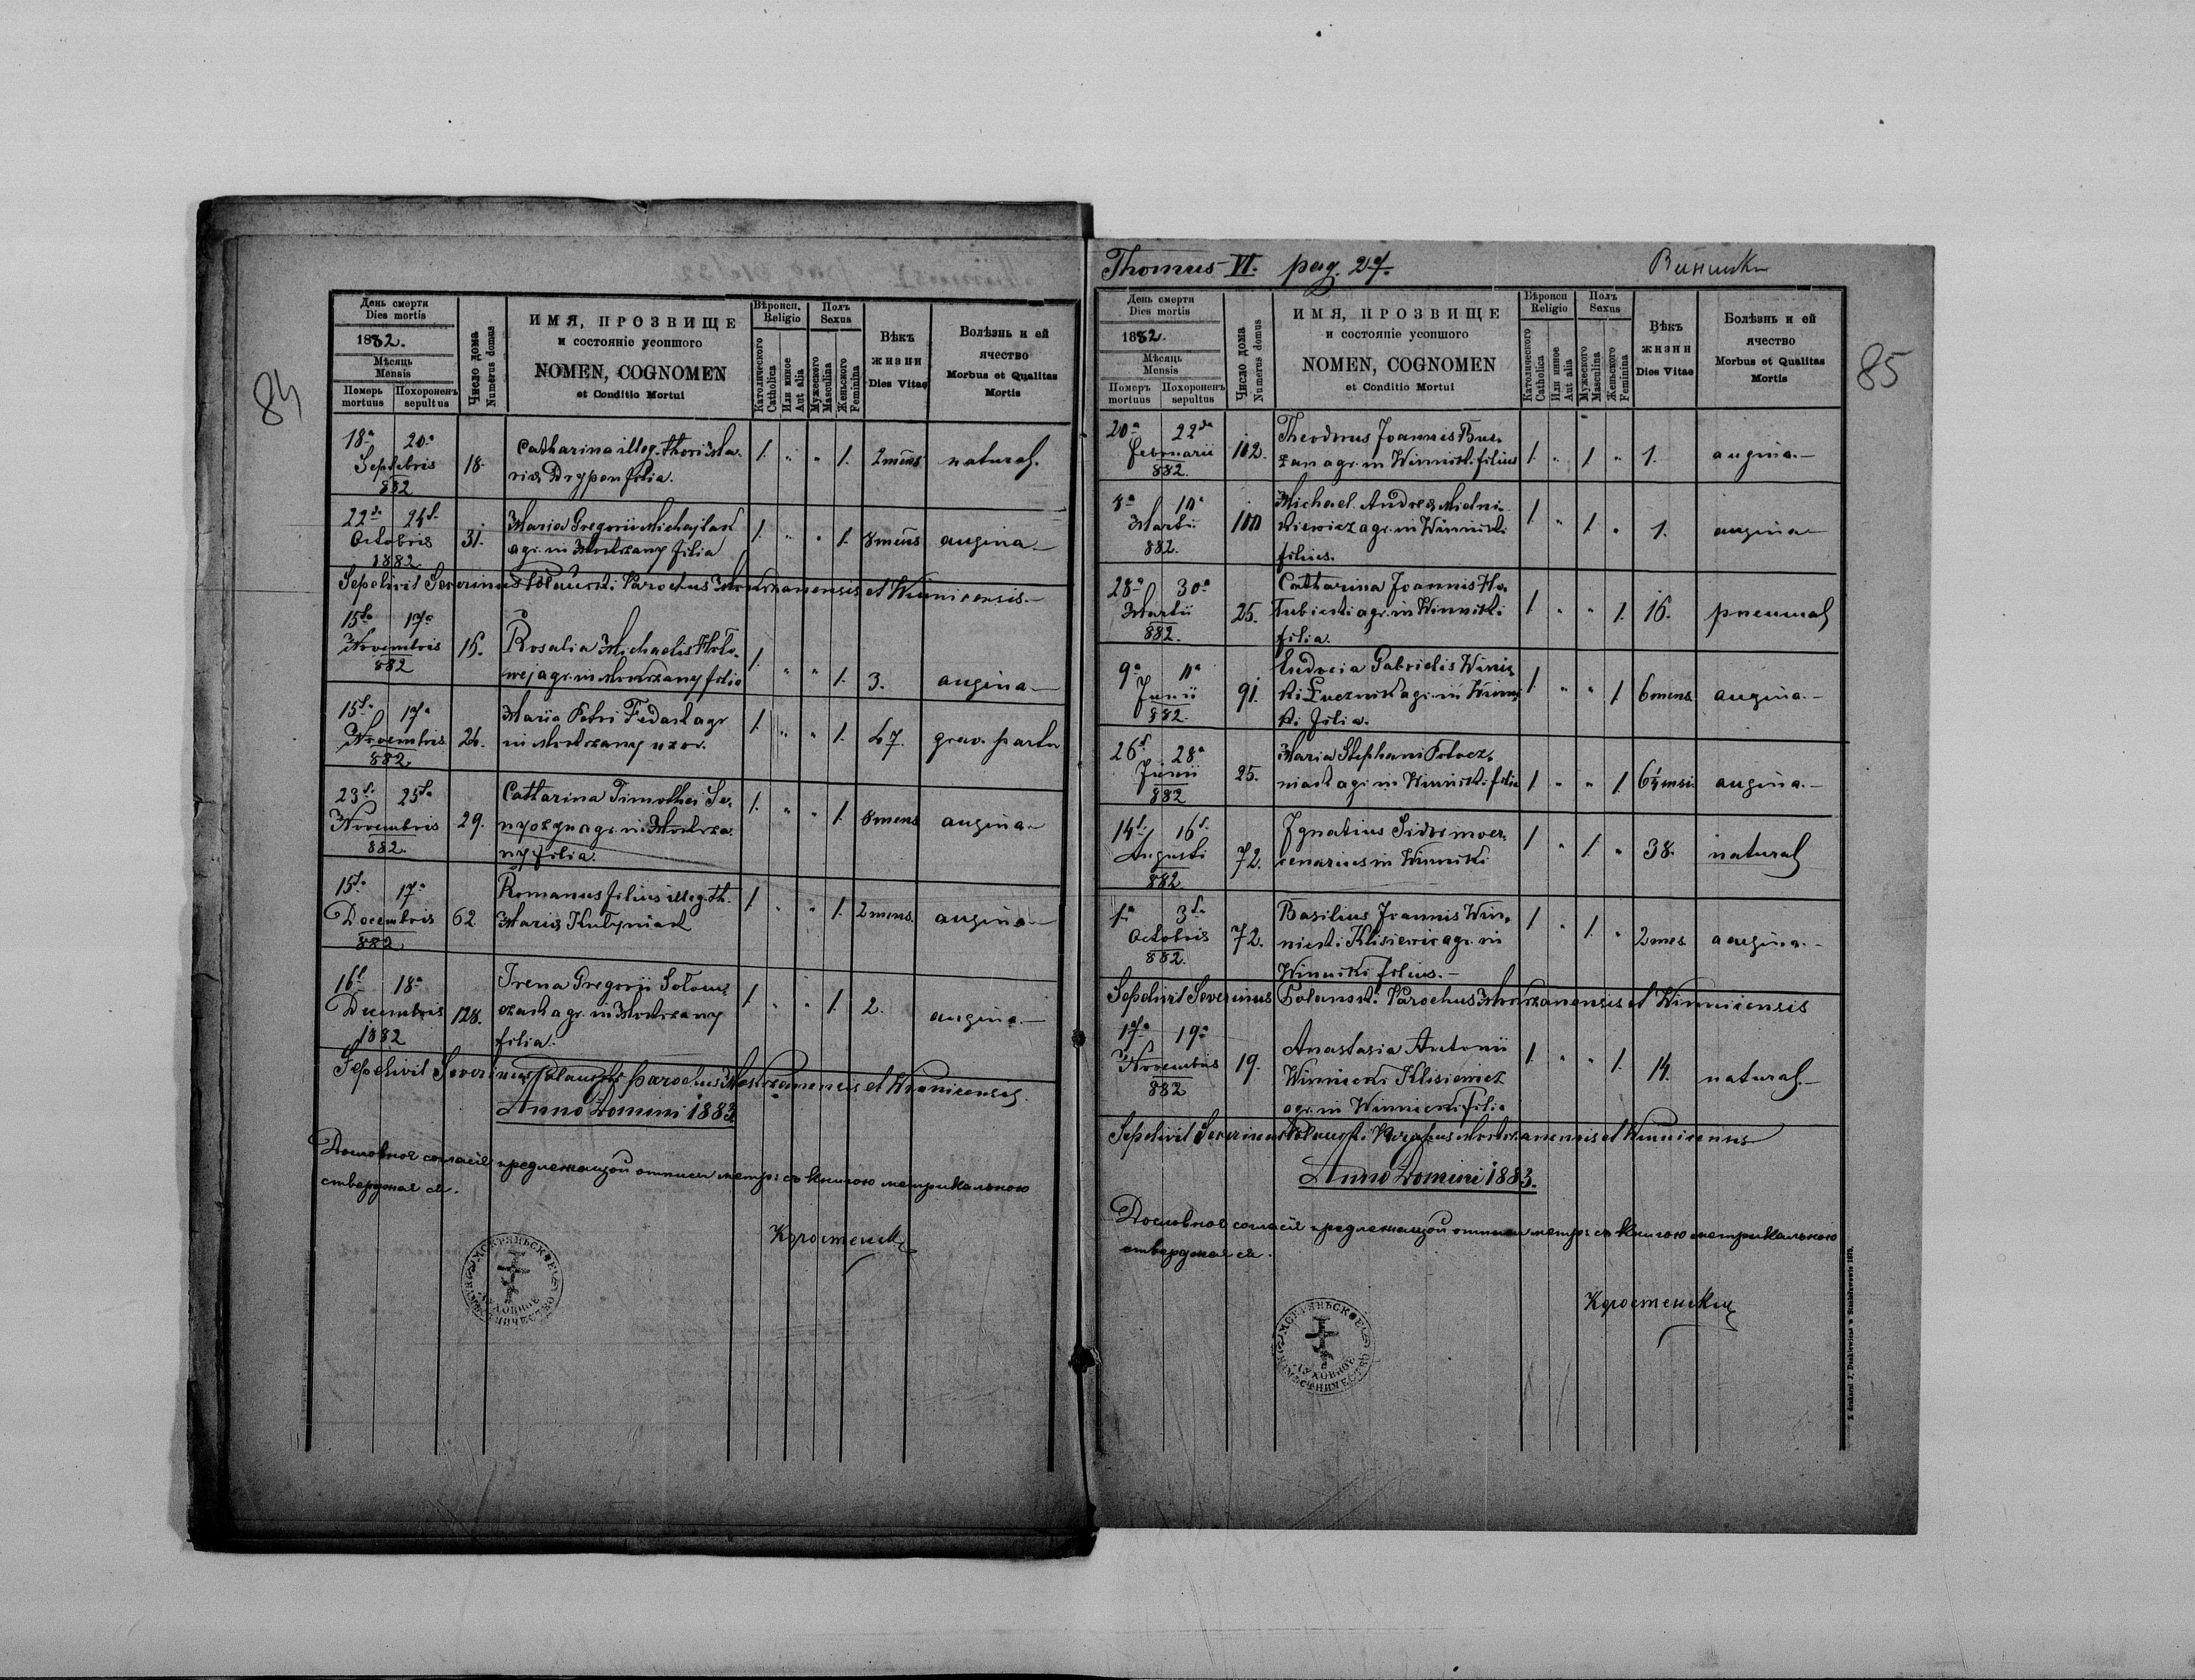 84
День смерти
Dies mortis
1882.
Мѣсяць
Mensis
Померъ
mortuus
Похороненъ
sepultus
Число дома
Numerus domus
ИМЯ, ПРОЗВИЩЕ
и состояніе усопшого
NOMEN, COGNOMEN
et Conditio Mortui
Вѣроисп.
Religio
Католического
Catholica
Или инное
Aut alia
Полъ
Sexus
Мужеского
Masculina
Женьского
Feminina
Вѣкъ
жизни
Dies Vitae
Болѣзнь и ей
ячество
Morbus et Qualitas
Mortis
18a 20a
Septebris
882
18.
Catharina illeg. thori Ma-
ria filia.
1. " " 1. 2 mens natural.
22da 24t.
Octobris
1882
31.
Maria Gregorii Michajlak
agr. in Mokrzany filia
1. " " 1. 8 mens angina
Sepelivit Severinus Polański Parochus Mokrzanensis et Winnicensis.
15ta 17a
Novembris
882
15.
Rosalia Michaelis
agr. in Mokrzany filia
1. " " 1. 3. angina
15ta 17a
Novembris
882
26.
Maria Petri Fedak agr
in Mokrzany uxor.
1. " " 1. 47. grav. partu
23t. 25ta
Novembris
882.
29.
Catharina Timothei Se-
agr. in Mokrza-
ny filia.
1. " " 1. 8 mens angina
15ta 17a
Decembris
882
62.
Romanus filius illeg. th.
Maria Kulyniak
1. " " 1. 2 mens. angina
16t 18a
Decembris
1882
128.
Irena Gregorii
agr. in Mokrzany
filia.
1. " " 1. 2. angina.
Sepelivit Severinus Polański parochus Mokrzanensis et Winnicensis.
Anno Domini 1883.
Дословное согласіе предлежащои отписи метр: съ книгою метрикальною
стверджае ся.
Коростенскі
МОКРЯНЬСКОЕ
ДУХОВНОЕ
Thomus VI. pag. 27.
Винники
85
День смерти
Dies mortis
1882.
Мѣсяць
Mensis
Померъ
mortuus
Похороненъ
sepultus
Число дома
Numerus domus
ИМЯ, ПРОЗВИЩЕ
и состояніе усопшого
NOMEN, COGNOMEN
et Conditio Mortui
Вѣроисп
Religio
Католического
Catholica
Или инное
Aut alia
Полъ
Sexus
Мужеского
Masculina
Женьского
Feminina
Вѣкъ
жизни
Dies Vitae
Болѣзнь и ей
ячество
Morbus et Qualitas
Mortis
20a 22da
Februarii
882.
102.
Theodorus Joannis
agr. in Winniki filius
1. " 1 " 1. angina.
8a 10a
Martii
882.
100
Michael Andreae Mielni-
kiewicz agr. in Winniki
filius.
1. " 1. " 1. angina
28a 30a
Martii
882.
25.
Catharina Joannis Ho-
lubicki agr. in Winniki
filia.
1. " " 1. 16. pneumal
9a 11a
Junii
882.
91.
Eudocia Gabrielis Winic-
ki Łucznik agr. in Winni-
ki filia.
1. " " 1 6 mens angina.
26t. 28a
Junii
882
25.
Maria Stephani
agr. in Winniki filia
1 " " 1. angina.
14t. 16t.
Augusti
882
72.
Ignatius Sidor merc-
cenarius in Winniki
1 " 1. " 38. natural
1a 3t.
Octobris
882.
72.
Basilius Joannis Win-
nicki Klisiewicz agr. in
Winniki filius.
1 " 1. " 2 mes angina.
Sepelivit Severinus Polański Parochus Mokrzanensis et Winnicensis
17a 19a
Novembris
882
19.
Anastasia Antonii
Winnicki Klisiewicz
agr. in Winnicki filia
1. " " 1. 14. natural.
Sepelivit Severinus Polański Parochus Mokrzanensis et Winnicensis
Anno Domini 1883.
Дословное согласіе предлежащои отписи метр: съ книгою метрикальною
стверджае ся.
Коростенскі
МОКРЯНЬСКОЕ
ДУХОВНОЕ